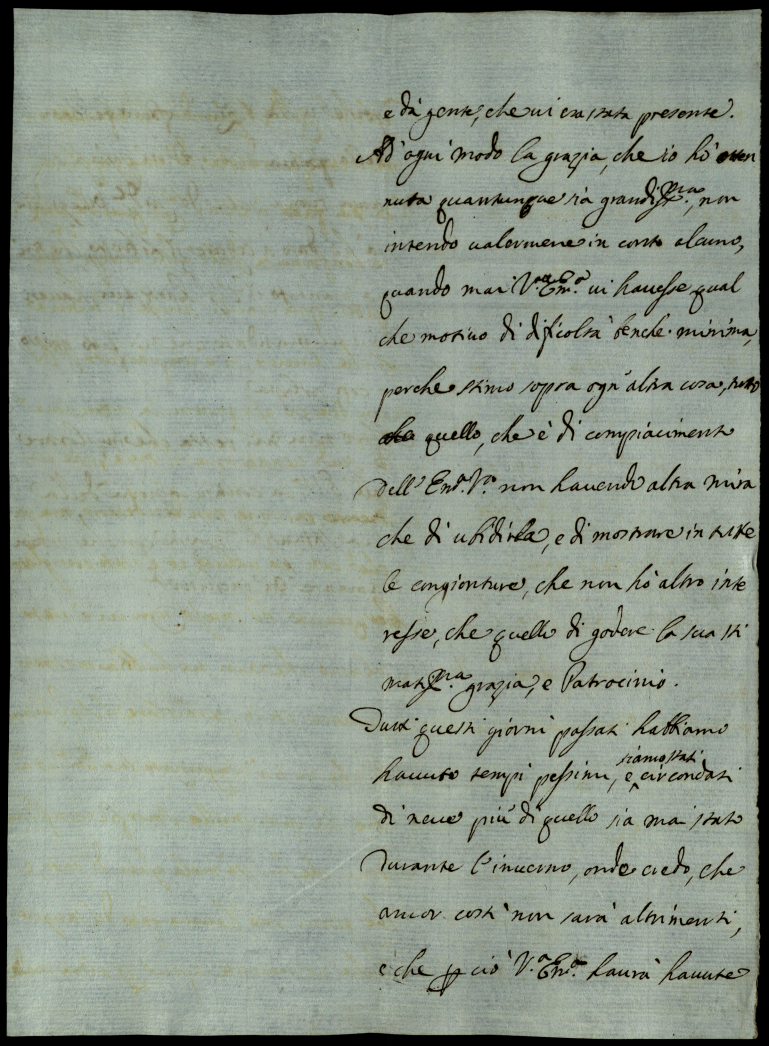 e da gente, che vi era stata presente.
Ad' ogni modo la grazia, che io hò otten
nuta quantunque sia grandiss.ma, non
intendo valermene in conto alcuno,
quando mai V.ra Em.a vi havesse qual
che motivo di dificoltà benche minima,
perche stimo sopra ogn' altra cosa, tutto
quello, che è di compiacimento
dell' Em.a V.ra non havendo altra mira
che di ubidirla, e di mostrare in tutte
le congionture, che non hò altro inte
resse, che quello di godere la sua sti
matiss.ma grazia, e Patrocinio.
Tutti questi giorni passati habbiamo
havuto tempi pessimi, e siamo stati circondati
di neve più di quello sia mai stato
durante l'inverno, onde credo, che
ancor costì non sarà altrimenti,
e che p ciò V.a Em.a havrà havute